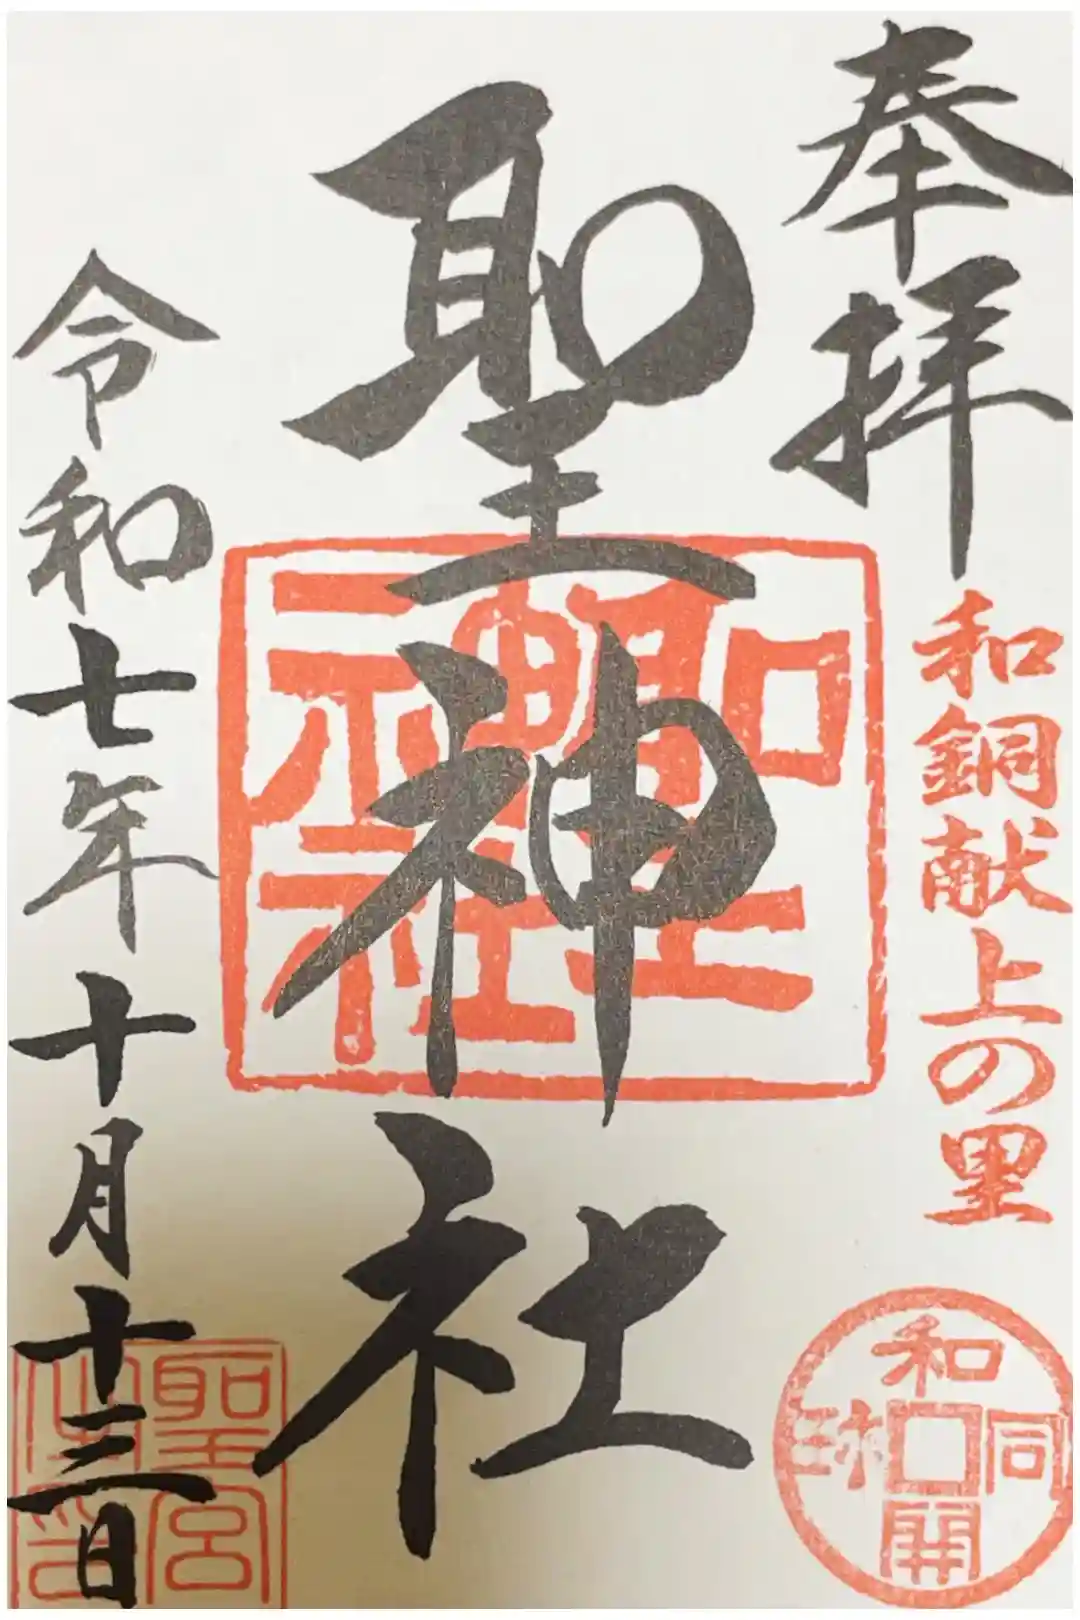 奉拝
和銅献上の里
和同開珎
聖神社
聖神社
令和七年十月十三日
聖宮